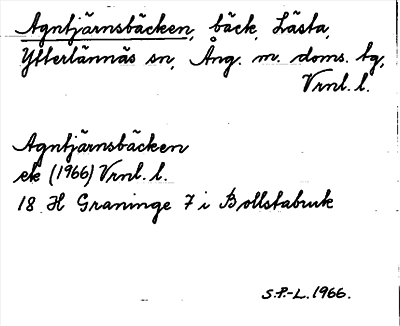 Agntjärnsbäcken, bäck, Lästa,
Ytterlännäs sn, Ång. m. doms. tg,
Vrnl. l.
Agntjärnsbäcken
ek (1966) Vrnl. l.
18 H Graninge 7 i Bollstabruk
S.P.-L. 1966.